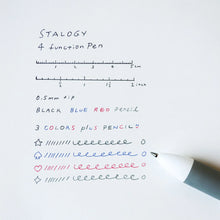 STALOGY
4 function Pen
1 2 3 4 5 cm
1 2 inch
0.5mm tip
BLACK BLUE RED Pencil
3 COLORS plus PENCIL!